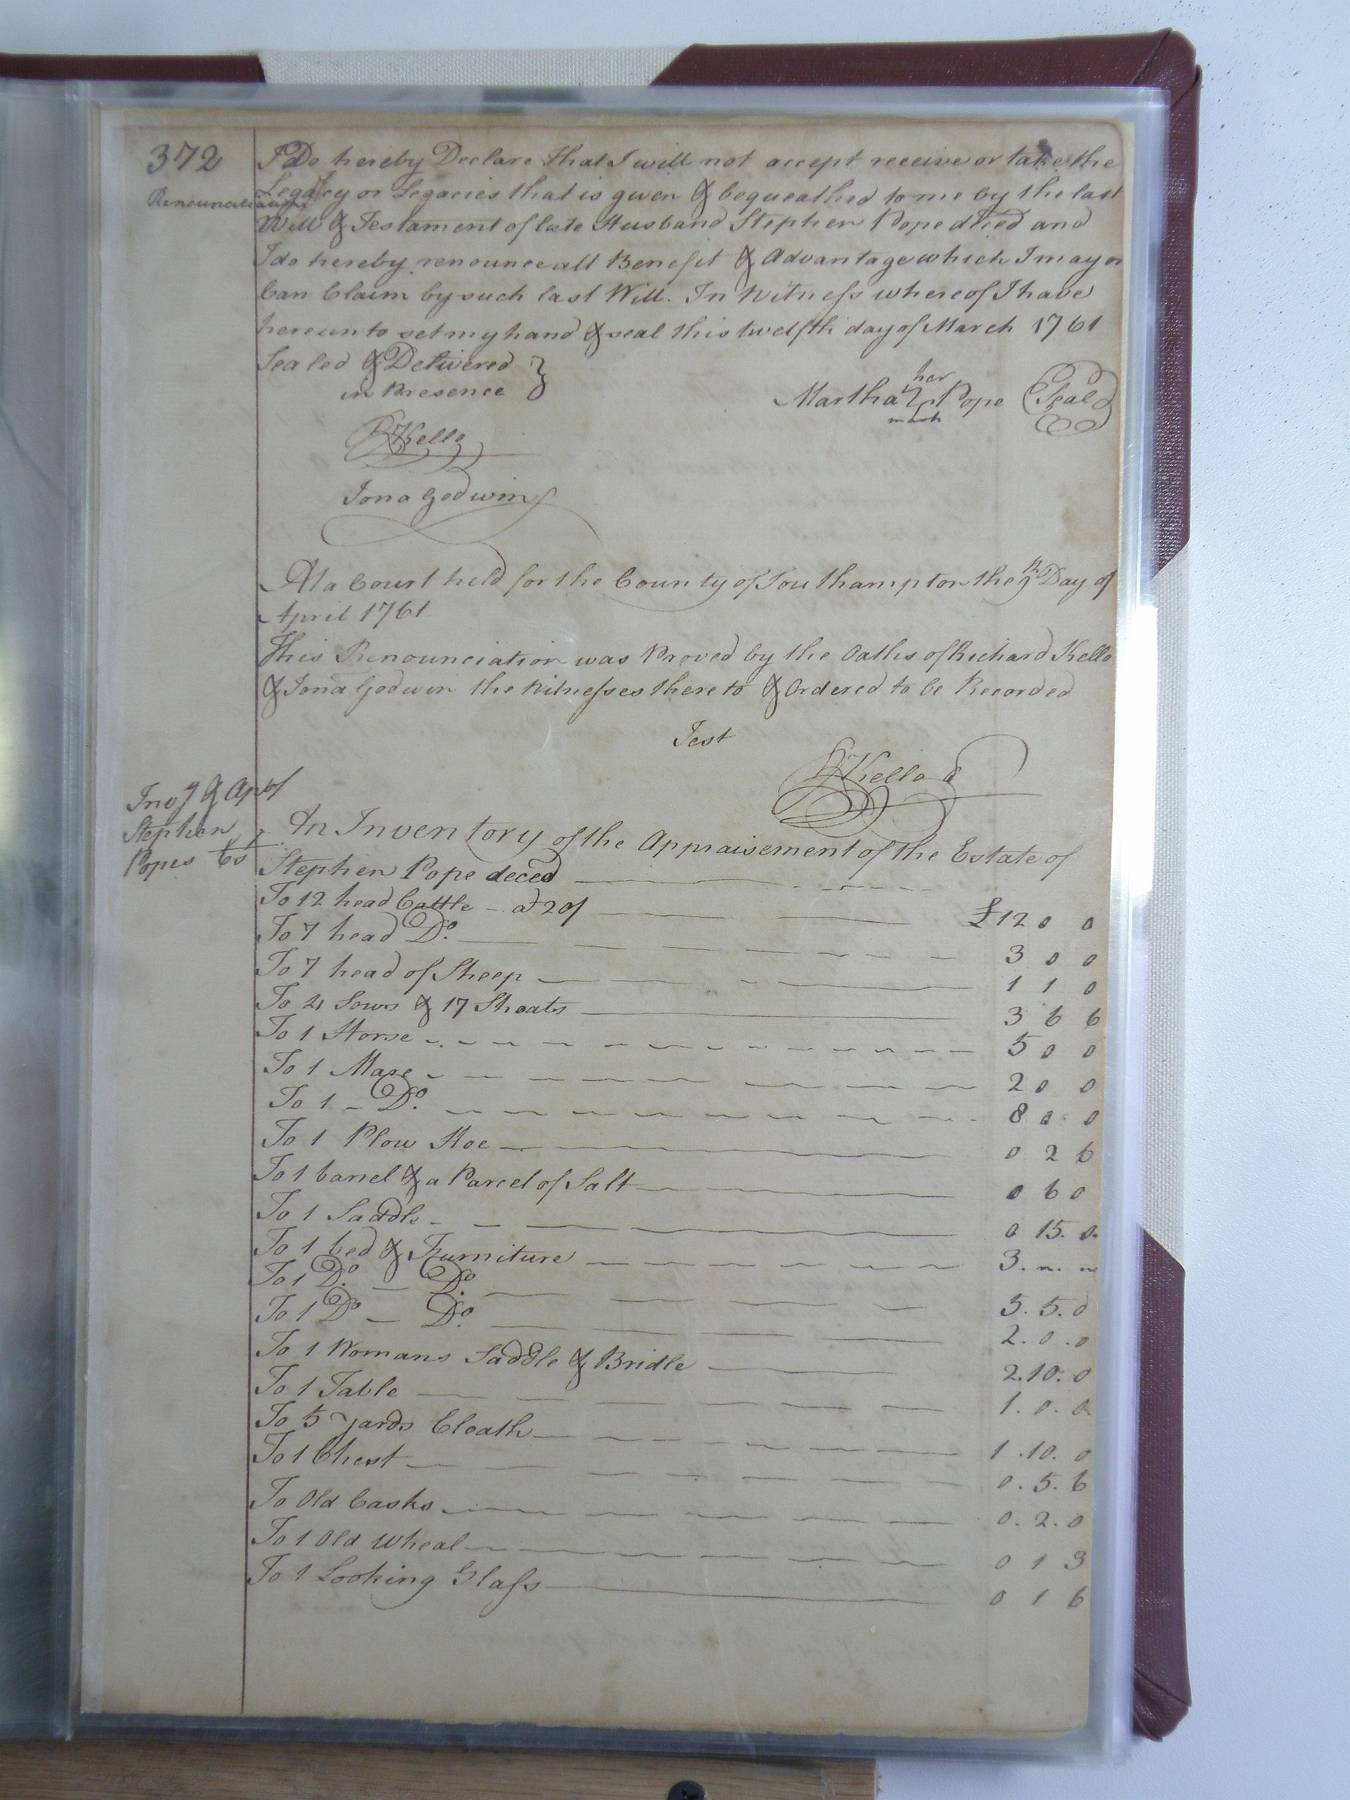 372
I Do hereby Declare that I will not accept receive or take the
Renunciation
Legacy or Legacies that is given & bequeathed to me by the last
Will & Testament of late Husband Stephen Pope deced and
I do hereby renounce all Benefit & Advantage which I may or
Can Claim by such last Will. In Witness whereof I have
hereunto set my hand & seal this twelfth day of March 1761
Sealed & Delivered }
in Presence
her
Martha Pope (Seal)
mark
R Kello
Jona Godwin
At a Court held for the County of Southampton the 9th Day of
April 1761
This Renounciation was Proved by the Oaths of Richard Kello
& Jona Godwin the Witnesses thereto & Ordered to be Recorded
Test
R Kello C
Invy & Apt of
Stephen
Popes Est
An Inventory of the Appraisement of the Estate of
Stephen Pope deced
To 12 head Cattle - at 20/ £12 0 0
To 7 head Do. 3 0 0
To 7 head of Sheep 1 1 0
To 4 Sows & 17 Shoats 3 6 6
To 1 Horse 5 0 0
To 1 Mare 2 0 0
To 1 - Do. 8 0 0
To 1 Plow Hoe 0 2 6
To 1 barrel & a Parcel of Salt 0 6 0
To 1 Saddle 0 15. 0.
To 1 bed & Furniture 3. ". "
To 1 Do. Do. 5. 5. 0
To 1 Do Do. 2. 0. 0
To 1 Womans Saddle & Bridle 2. 10. 0
To 1 Table 1. 0. 0
To 5 yards Cloath 1. 10. 0
To 1 Chest 0. 5. 6
To Old Casks 0. 2. 0
To 1 Old Wheal 0 1 3
To 1 Looking Glass 0 1 6